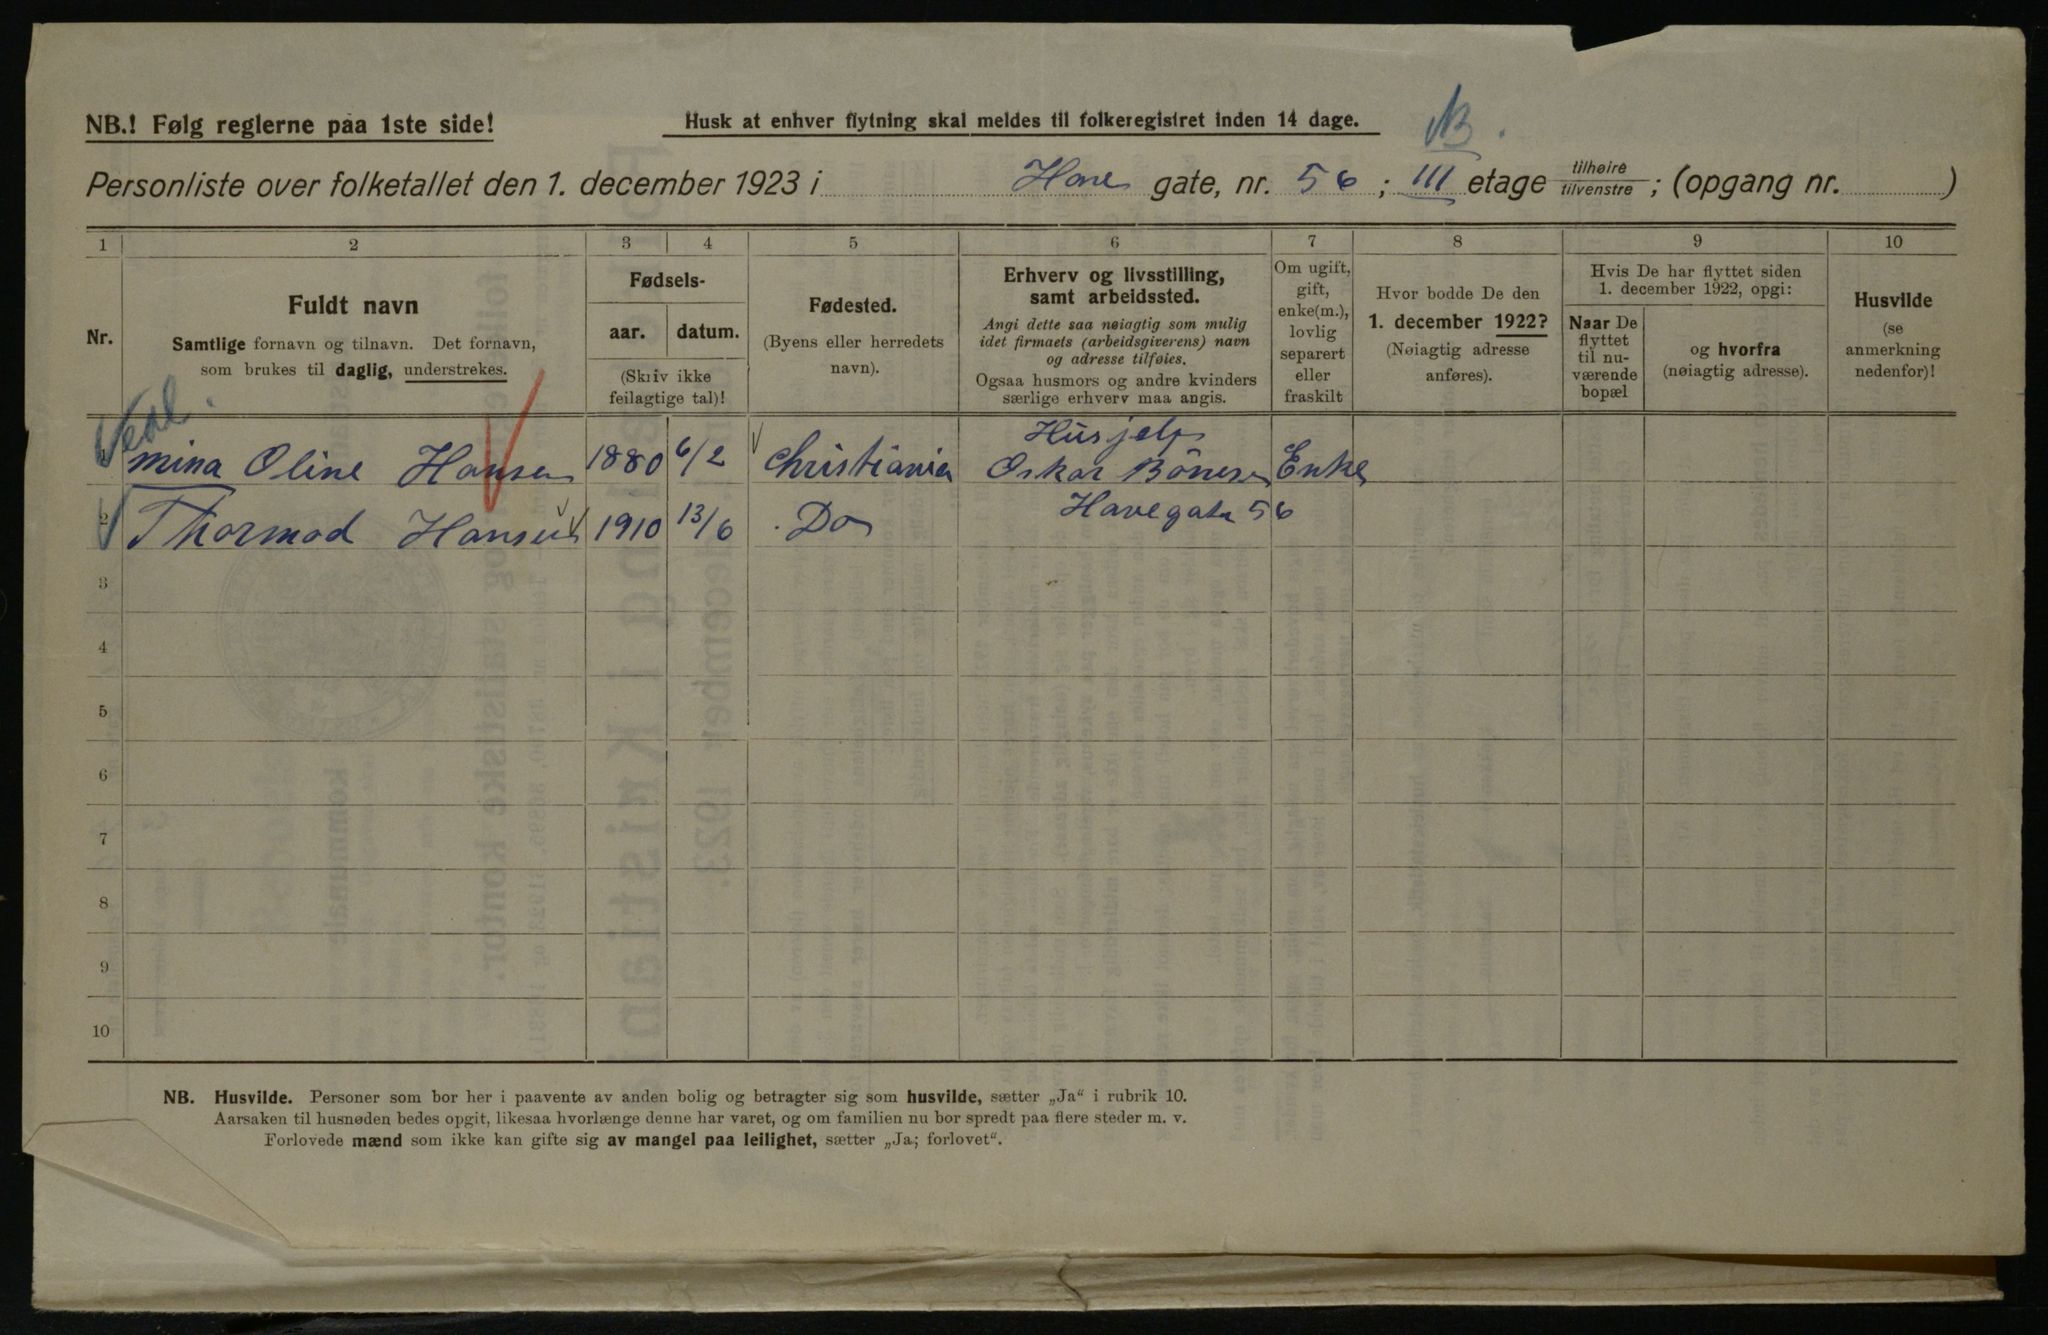 NB.! Følg reglerne paa 1ste side!
Husk at enhver flytning skal meldes til folkeregistret inden 14 dage.
Personliste over folketallet den 1. december 1923 i Have gate, nr. 56; III etage tilhøire/tilvenstre; (opgang nr. )
1 2 3 4 5 6 7 8 9 10
Nr.
Fuldt navn
Samtlige fornavn og tilnavn. Det fornavn,
som brukes til daglig, understrekes.
Fødsels-
aar. datum.
(Skriv ikke
feilagtige tal)!
Fødested.
(Byens eller herredets
navn).
Erhverv og livsstilling,
samt arbeidssted.
Angi dette saa nøiagtig som mulig
idet firmaets (arbeidsgiverens) navn
og adresse tilføies.
Ogsaa husmors og andre kvinders
særlige erhverv maa angis.
Om ugift,
gift,
enke(m.),
lovlig
separert
eller
fraskilt
Hvor bodde De den
1. december 1922?
(Nøiagtig adresse
anføres).
Hvis De har flyttet siden
1. december 1922, opgi:
Naar De
flyttet
til nu-
værende
bopæl
og hvorfra
(nøiagtig adresse).
Husvilde
(se
anmerkning
nedenfor)!
Husjelp
1 Mina Oline Hansen 1880 6/2 Christiania Oskar Enke
Havegata 56
2 Thormod Hansen 1910 13/6 Do
3
4
5
6
7
8
9
10
NB. Husvilde. Personer som bor her i paavente av anden bolig og betragter sig som husvilde, sætter „Ja“ i rubrik 10.
Aarsaken til husnøden bedes opgit, likesaa hvorlænge denne har varet, og om familien nu bor spredt paa flere steder m. v.
Forlovede mænd som ikke kan gifte sig av mangel paa leilighet, sætter „Ja; forlovet“.